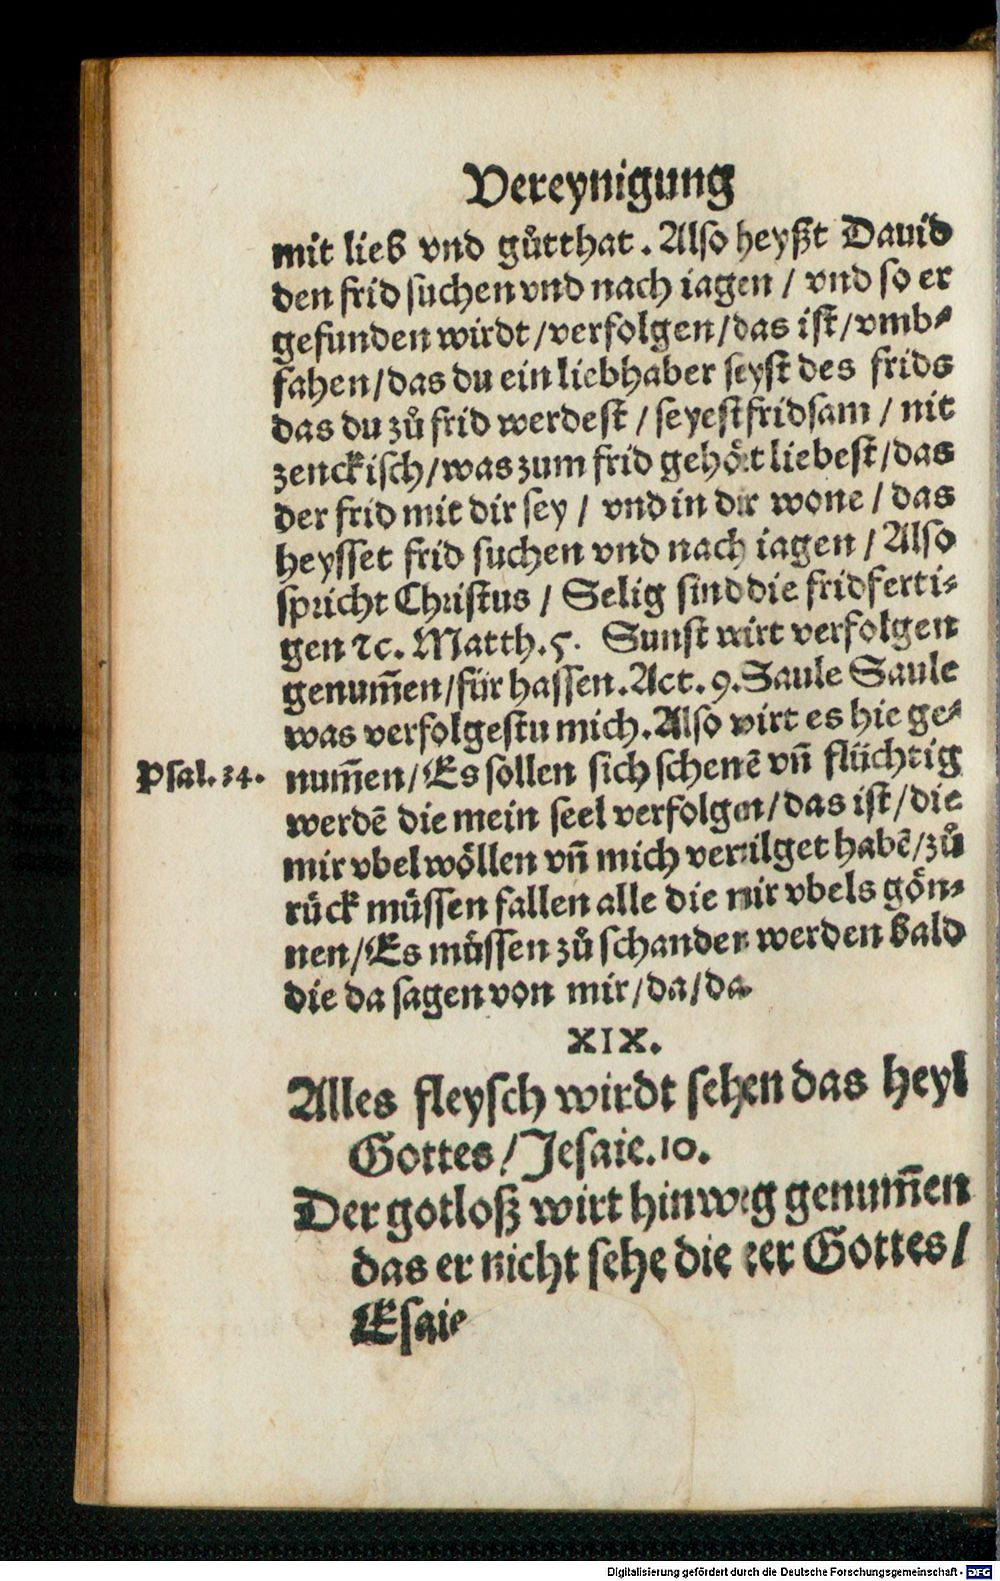 Vereynigung
mit lieb vnd gůtthat. Also heyßt Dauid
den frid suchen vnd nach iagen / vnd so er
gefunden wirdt/verfolgen/das ist/vmb⸗
fahen/das du ein liebhaber seyst des frids
das du zů frid werdest / seyest fridsam / nit
zenckisch/was zum frid gehört liebest/das
der frid mit dir sey / vnd in dir wone / das
heysset frid suchen vnd nach iagen / Also
spricht Christus / Selig sind die fridferti⸗
gen ꝛc. Matth.5. Sunst wirt verfolgen
genum̃en/für hassen. Act. 9. Saule Saule
was verfolgestu mich. Also wirt es hie ge⸗
Psal.34. num̃en/Es sollen sich schenẽ vñ flüchtig
werdẽ die mein seel verfolgen/das ist/die
mir vbel wöllen vñ mich vertilget habẽ/zů
rück müssen fallen alle die mir vbels gön⸗
nen/Es müssen zů schanden werden bald
die da sagen von mir/da/da.
XIX.
Alles fleysch wirdt sehen das heyl
Gottes / Jesaie.10.
Der gotloß wirt hinweg genum̃en
das er nicht sehe die eer Gottes /
Esaie
Digitalisierung gefördert durch die Deutsche Forschungsgemeinschaft - DFG